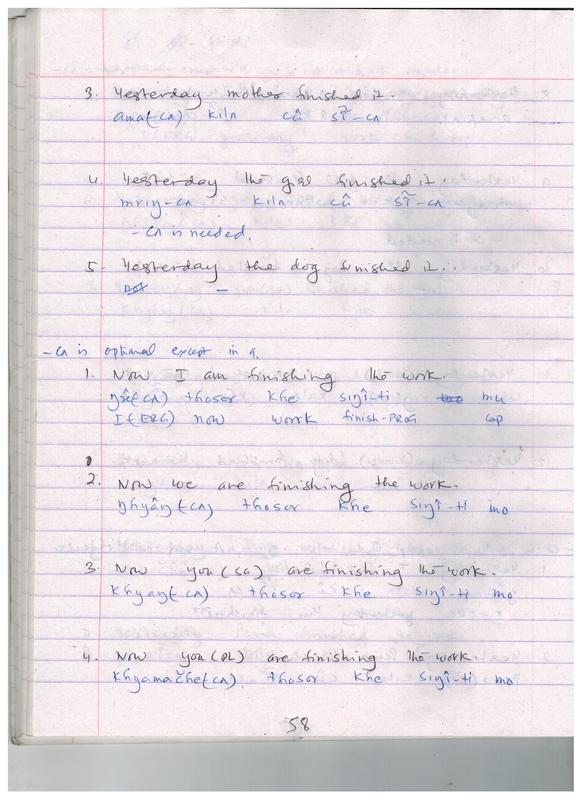 3. Yesterday mother finished it.
ama(-cʌ) kilʌ cû sĩ̂-cʌ
4. Yesterday the girl finished it.
mriŋ-cʌ kilʌ cû sĩ̂-cʌ
-cʌ is needed.
5. Yesterday the dog finished it..
-
-cʌ is optional except in 9.
1. Now I am finishing the work.
ŋ̂ɔ(-cʌ) thosor khe siŋî-ti mu
I(-ERG) now work finish-PROG cop
2. Now we are finishing the work.
ŋhyâŋ(-cʌ) thosor khe siŋî-ti mo
3. Now you (SG) are finishing the work.
khyaŋ(-cʌ) thosor khe siŋî-ti mo
4. Now you (PL) are finishing the work.
khyamaĩche(-cʌ) thosor khe siŋî-ti mo
58